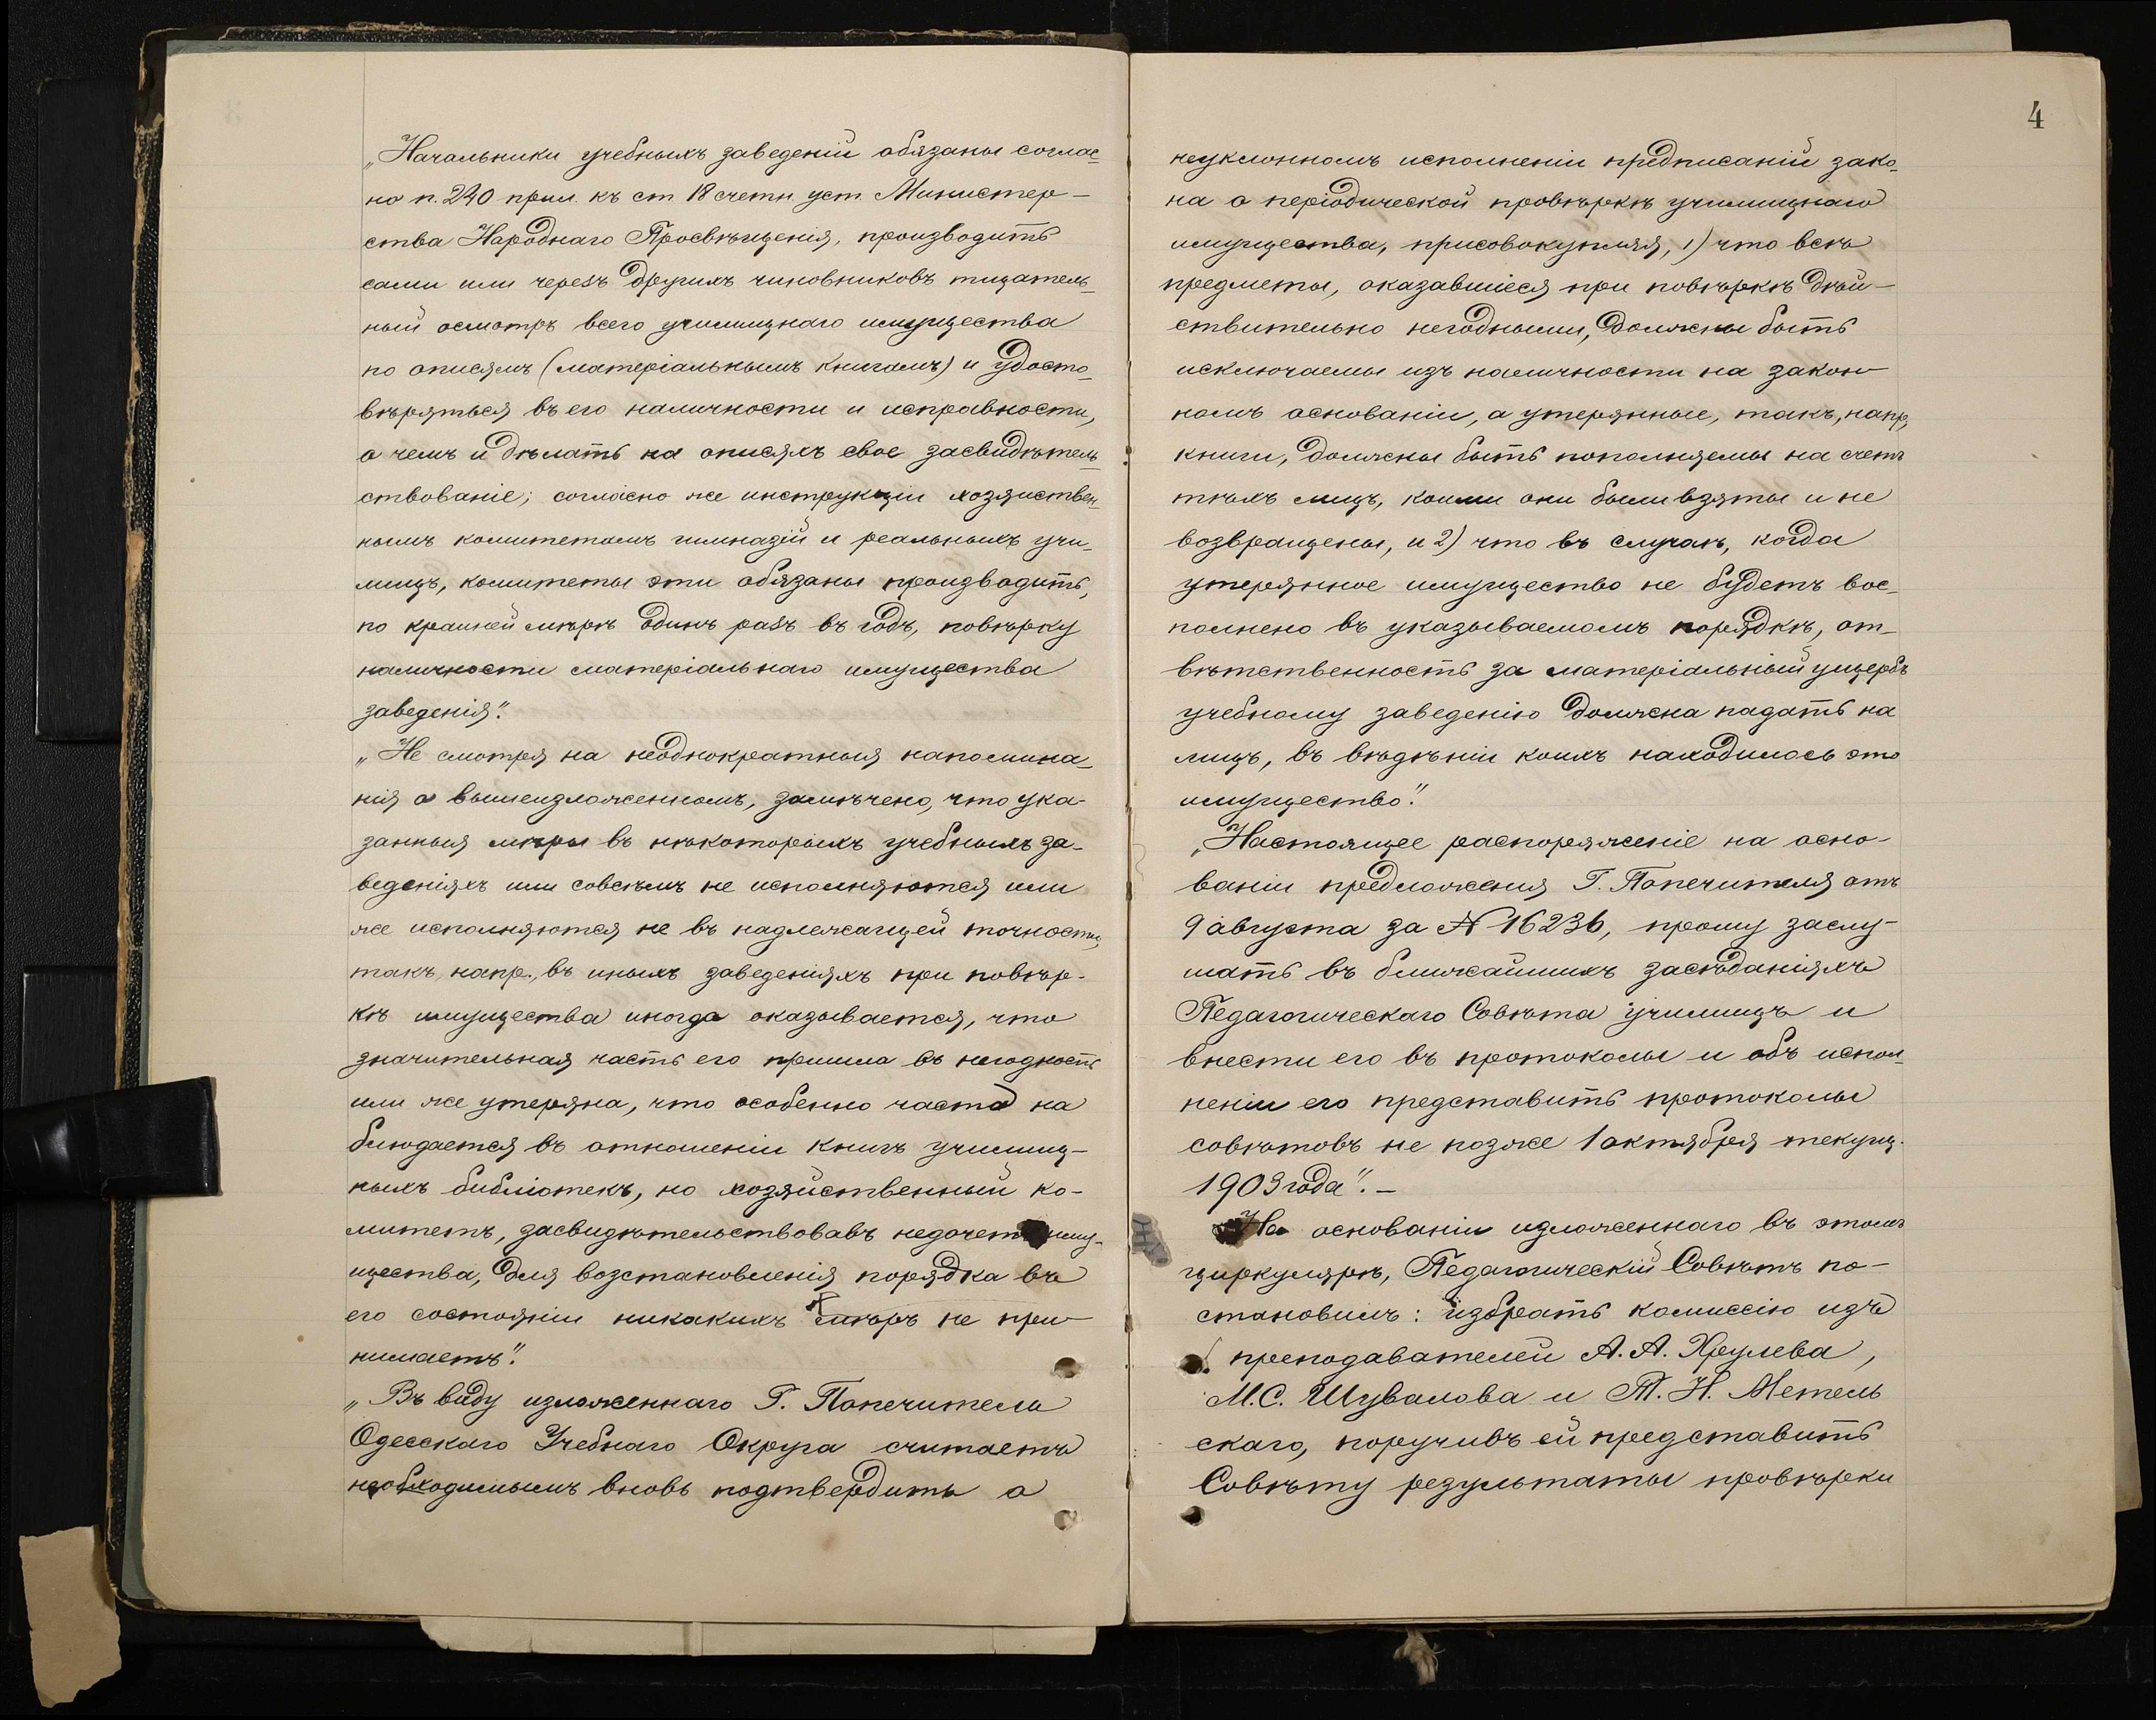 „Начальники учебныхъ заведеній обязаны соглас-
но п. 240 прил. къ ст 18 счетн. уст. Министер-
ства Народнаго Просвѣщенія, производить
сами или черезъ другихъ чиновниковъ тщатель-
ный осмотръ всего училищнаго имущества
по описямъ (матеріальнымъ книгамъ) и удосто-
вѣряться въ его наличности и исправности,
о чемъ и дѣлать на описяхъ свое засвидѣтель-
ствованіе; согласно же инструкціи хозяйствен-
нымъ комитетамъ гимназій и реальныхъ учи-
лищъ, комитеты эти обязаны производить,
по крайней мѣрѣ одинъ разъ въ годъ, повѣрку
наличности матеріальнаго имущества
заведенія“.
„Не смотря на неоднократныя напомина-
нія о вышеизложенномъ, замѣчено, что ука-
занныя мѣры въ нѣкоторыхъ учебныхъ за-
веденіяхъ или совсѣмъ не исполняются или
же исполняются не въ надлежащей точности,
такъ, напр., въ иныхъ заведеніяхъ при повѣр-
кѣ имущества иногда оказывается, что
значительная часть его пришла въ негодность
или же утеряна, что особенно часто на
блюдается въ отношеніи книгъ училищ-
ныхъ библіотекъ, но хозяйственный ко-
митетъ, засвидѣтельствовавъ недочетъ иму-
щества, для возстановленія порядка въ
его состояніи никакихъ мѣръ не при-
нимаетъ“.
„Въ виду изложеннаго Г. Попечитель
Одесскаго Учебнаго Округа считаетъ
необходимымъ вновь подтвердить о
4
неуклонномъ исполненіи предписаній зако-
на о періодической провѣркѣ училищнаго
имущества, присовокупляя, 1) что всѣ
предметы, оказавшіеся при повѣркѣ дѣй-
ствительно негодными, должны быть
исключаемы изъ наличности на закон-
номъ основаніи, а утерянные, такъ, напр,
книги, должны быть пополняемы на счетъ
тѣхъ лицъ, коими они были взяты и не
возвращены, и 2) что въ случаѣ, когда
утерянное имущество не будетъ вос-
полнено въ указываемомъ порядкѣ, от-
вѣтственность за матеріальный ущербъ
учебному заведенію должна падать на
лицъ, въ вѣдѣніи коихъ находилось это
имущество“.
„Настоящее распоряженіе на осно-
ваніи предложения Г. Попечителя отъ
9 августа за № 16236, прошу заслу-
шать въ ближайшихъ засѣданіяхъ
Педагогическаго Совѣта училищъ и
внести его въ протоколы и объ испол-
неніи его представить протоколы
совѣтовъ не позже 1 октября текущ.
1903 года“. –
На основаніи изложеннаго въ этомъ
циркулярѣ, Педагогическій Совѣтъ по-
становилъ: избрать комиссію изъ
преподавателей А. А. Хрулева,
М. С. Шувалова и П. Н. Метель
скаго, поручивъ ей представить
Совѣту результаты провѣрки